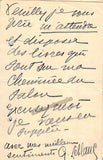 Veuillez je vous
prie m'attendre
Et disposer
des livres qui
sont sur ma
cheminée du
salon
Excusez moi
je vous en
supplie
avec mes meilleurs
sentiments G. Leblanc